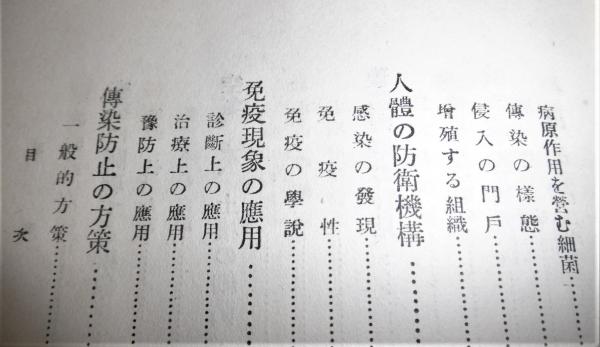 病原作用を營む細菌…………
傳染の樣態…………
侵入の門戶…………
增殖する組織…………
人體の防衛機構…………
感染の發現…………
免疫性…………
免疫の學說…………
免疫現象の應用…………
診斷上の應用…………
治療上の應用…………
豫防上の應用…………
傳染防止の方策…………
一般的方策…………
目次